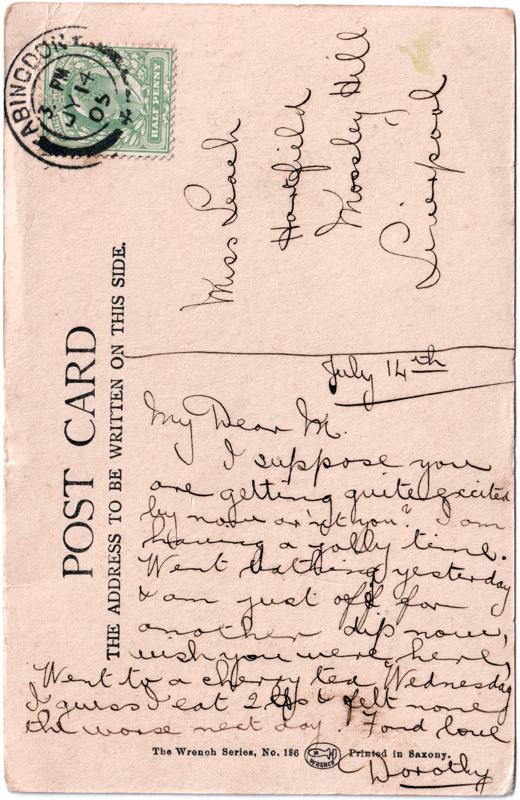 ABINGDON
3 PM
JY 14
05
HALF PENNY
Miss Leach
Hartfield
Mossley Hill
Liverpool
POST CARD
THE ADDRESS TO BE WRITTEN ON THIS SIDE.
July 14th
My Dear M.
I suppose you
are getting quite excited
by now ar'nt you? I am
having a jolly time.
Went bathing yesterday
& am just off for
another dip now,
wish you were here,
Went to a cherry tea Wednesday
I guess I eat 2 lbs & felt none
the worse next day. Fond love
Dorothy
The Wrench Series, No. 186
WRENCH
Printed in Saxony.